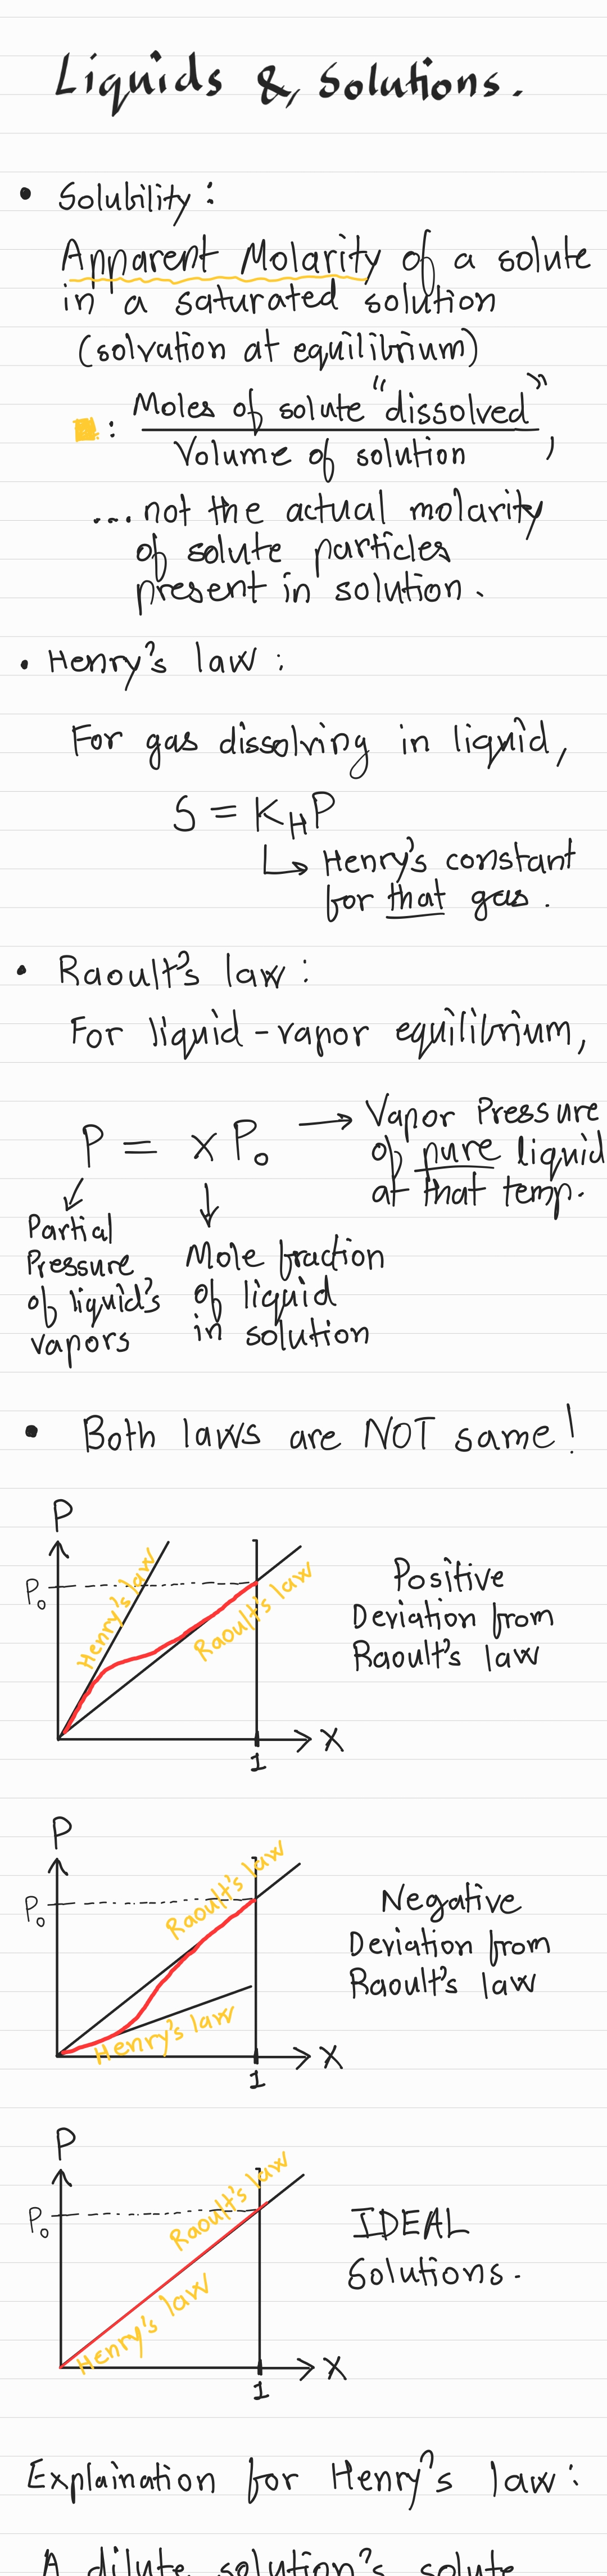 Liquids & Solutions.
• Solubility:
Apparent Molarity of a solute
in a saturated solution
(solvation at equilibrium)
: Moles of solute "dissolved"
Volume of solution,
... not the actual molarity
of solute particles
present in solution.
• Henry's law:
For gas dissolving in liquid,
S = K_H P
↳ Henry's constant
for that gas.
• Raoult's law:
For liquid-vapor equilibrium,
P = x P₀ → Vapor Pressure
of pure liquid
at that temp.
Partial
Pressure
of liquid's
vapors
Mole fraction
of liquid
in solution
• Both laws are NOT same!
P
P₀
Henry's law
Raoult's law
X
1
Positive
Deviation from
Raoult's law
P
P₀
Raoult's law
Henry's law
X
1
Negative
Deviation from
Raoult's law
P
P₀
Raoult's law
Henry's law
X
1
IDEAL
Solutions.
Explaination for Henry's law:
A dilute solution's solute